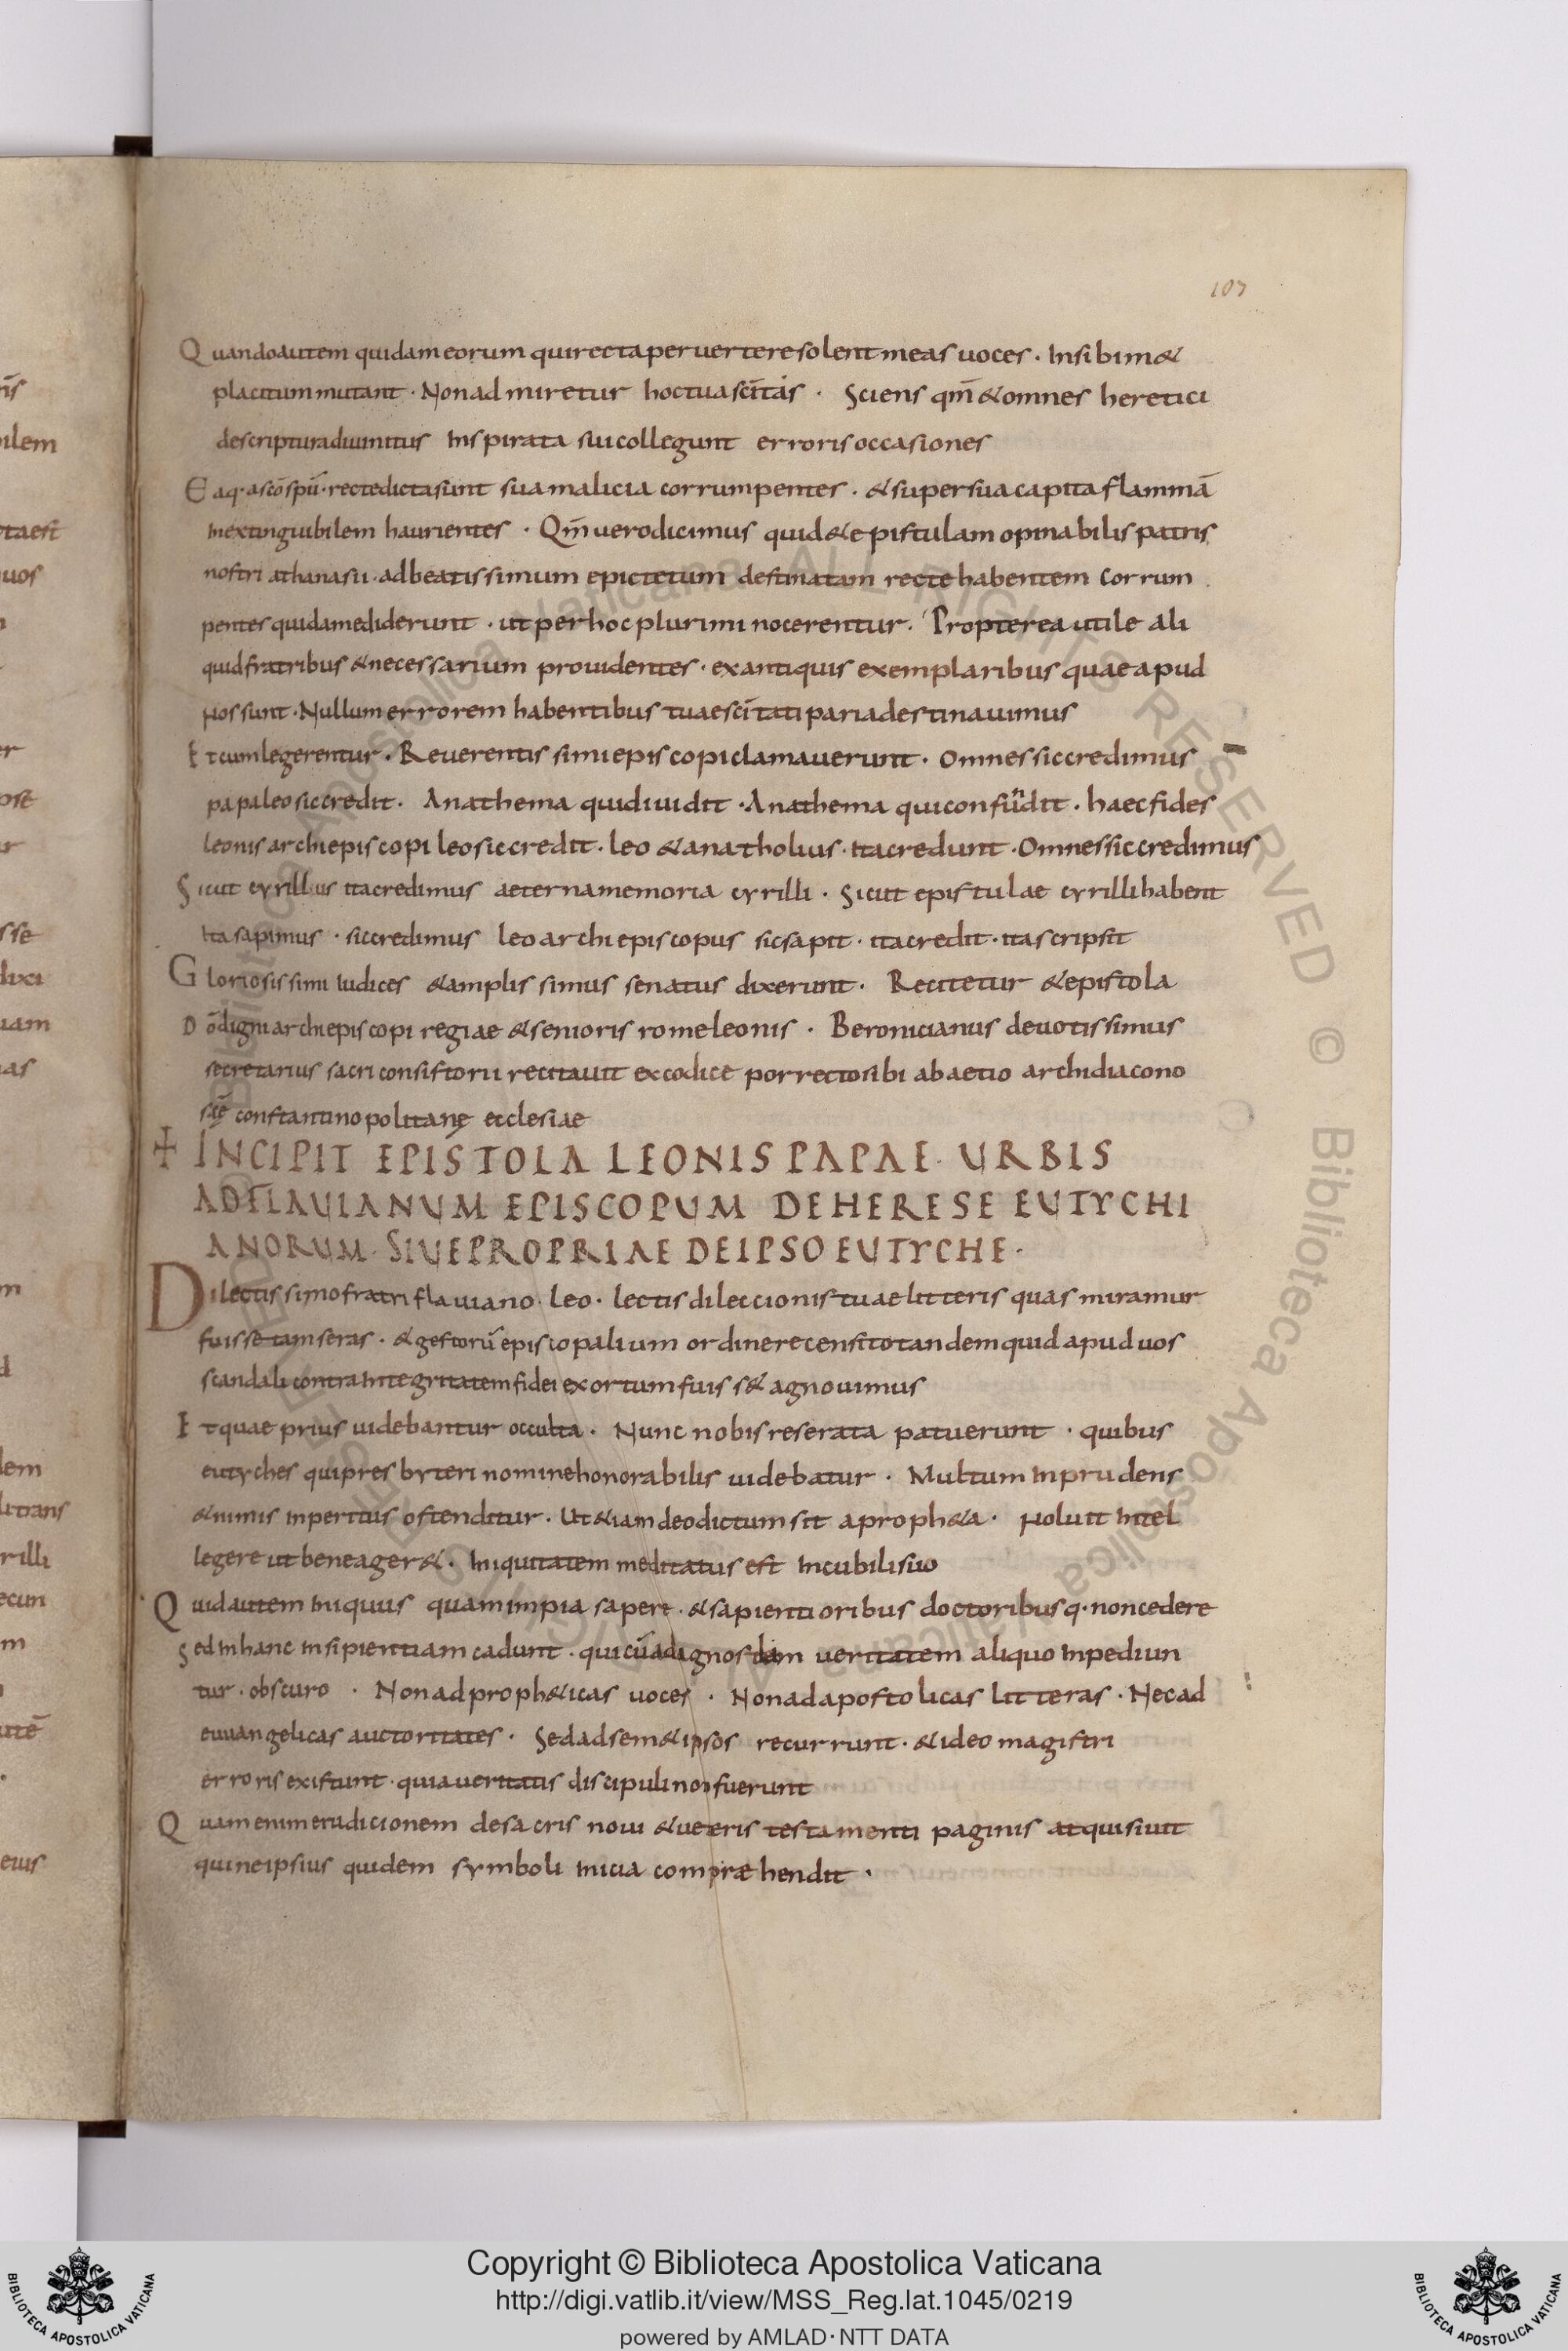 107
Quando autem quidam eorum qui recta peruertere solent meas uoces · In sibimet
placitum mutant · Non admiretur hoc tua scītas · Sciens qm̄ & omnes heretici
de scriptura diuinitus inspirata sui collegunt erroris occasiones
Eaq· a scō spū· recte dicta sunt sua malicia corrumpentes · & super sua capita flammā
inextinguibilem haurientes · Qm̄ uero dicimus quid & epistulam opinabilis patris
nostri athanasii · ad beatissimum epictetum destinatam recte habentem corrum
pentes quidam ediderunt · ut per hoc plurimi nocerentur · Propterea utile ali
quid fratribus & necessarium prouidentes · ex antiquis exemplaribus quae apud
Nos sunt · Nullum errorem habentibus tuae scītati paria destinauimus
Et cum legerentur · Reuerentissimi episcopi clamauerunt · Omnes sic credimus
papa leo sic credit · Anathema qui diuidit · Anathema qui confundit · haec fides
leonis archiepiscopi leo sic credit · leo & anatholius · ita credunt · Omnes sic credimus
Sicut cyrillus ita credimus aeterna memoria cyrilli · Sicut epistulae cyrilli habent
ita sapimus · sic credimus leo archiepiscopus sic sapit · ita credit · ita scripsit
Gloriosissimi iudices & amplissimus senatus dixerunt · Recitetur & epistola
Dō digni archiepiscopi regiae & senioris rome leonis · Beronicianus deuotissimus
secretarius sacri consistorii recitauit ex codice porrecto sibi ab aetio archidiacono
scę̄ constantinopolitanę ecclesiae
✝ INCIPIT EPISTOLA LEONIS PAPAE · URBIS
AD FLAUIANUM EPISCOPUM DE HERESE EUTYCHI
ANORUM · SIUE PROPRIAE DE IPSO EUTYCHE ·
Dilectissimo fratri flauiano · Leo · lectis dileccionis tuae litteris quas miramur
fuisse tam seras · & gestorū episcopalium ordine recensito tandem quid apud uos
scandali contra integritatem fidei exortum fuiss& agnouimus
Et quae prius uidebantur occulta · Nunc nobis reserata patuerunt · quibus
eutyches qui presbyteri nomine honorabilis uidebatur · Multum inprudens
& nimis inperitus ostenditur · Ut &iam de o dictum sit a proph&a · Noluit intel
legere ut bene ager& · Iniquitatem meditatus est in cubili suo
Quid autem iniquius quam impia sapere · & sapientioribus doctoribusq· non cedere
Sed in hanc insipientiam cadunt · qui cū ad ignosdam ueritatem aliquo inpediun
tur · obscuro · Non ad proph&icas uoces · Non ad apostolicas litteras · Nec ad
euuangelicas auctoritates · Sed ad sem&ipsos recurrunt · & ideo magistri
erroris existunt · quia ueritatis discipuli non fuerunt
Quam enim erudicionem de sacris noui & ueteris testamenti paginis atquisiuit
qui ne ipsius quidem symboli inicia compræhendit ·
Copyright © Biblioteca Apostolica Vaticana
http://digi.vatlib.it/view/MSS_Reg.lat.1045/0219
powered by AMLAD·NTT DATA